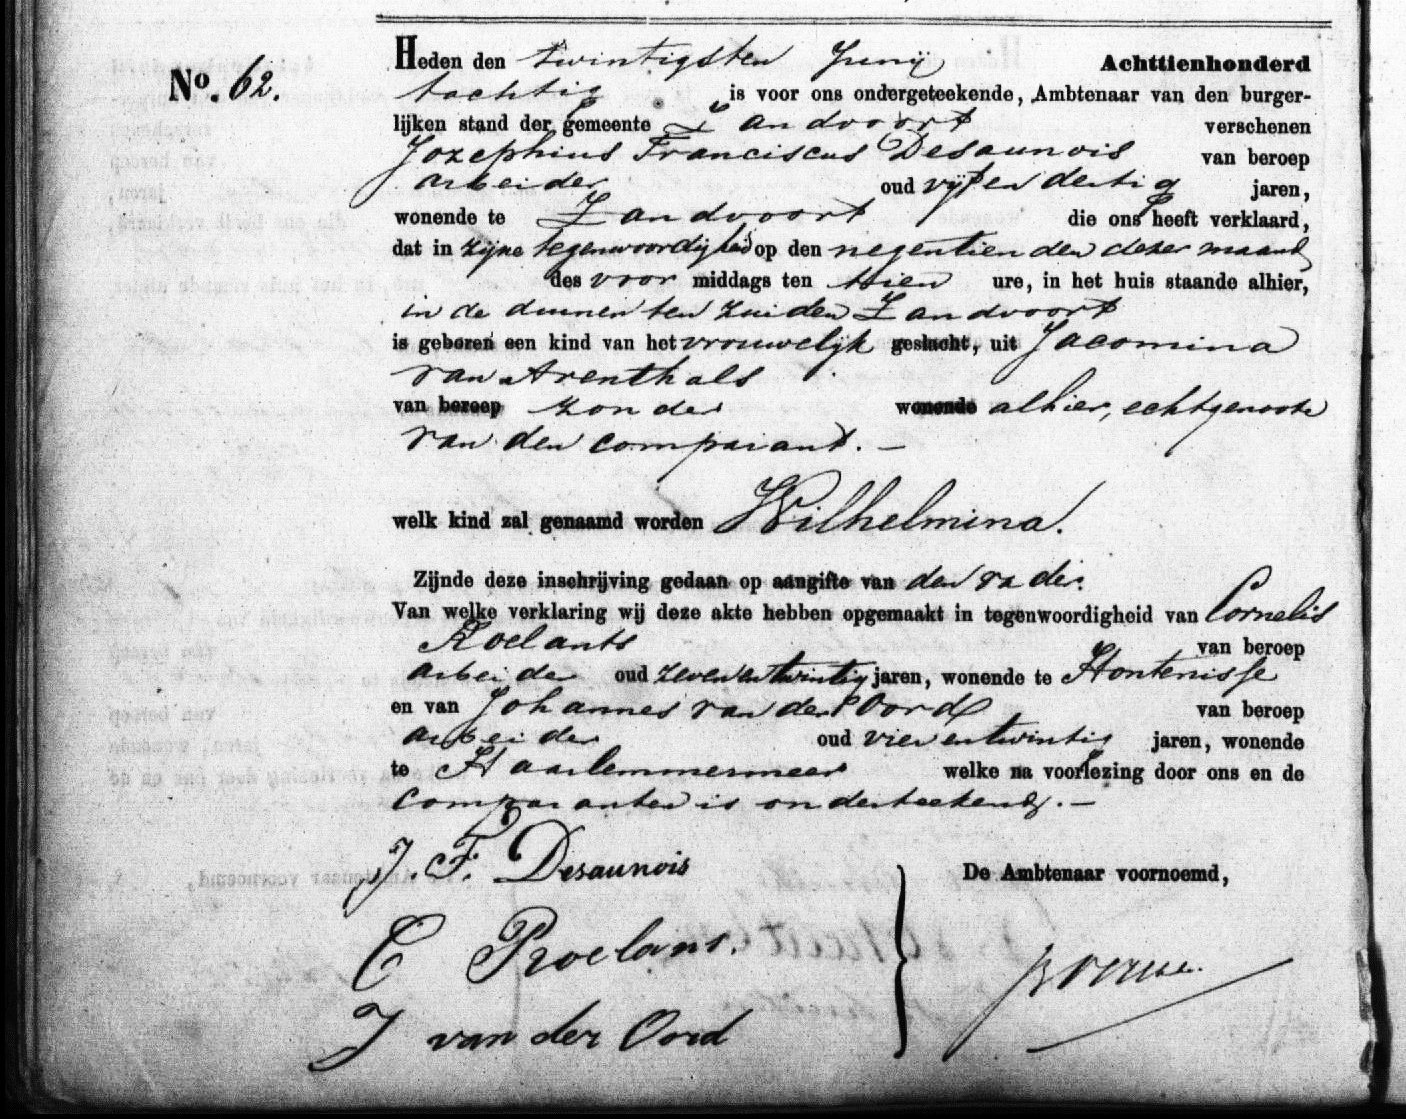 No. 62.
Heden den twintigsten Junij Achttienhonderd
tachtig is voor ons ondergeteekende, Ambtenaar van den burger-
lijken stand der gemeente Zandvoort verschenen
Jozephius Franciscus Desaunois van beroep
arbeider oud vijf en dertig jaren,
wonende te Zandvoort die ons heeft verklaard,
dat in zijne tegenwoordigheid op den negentienden dezer maand
des voor middags ten tien ure, in het huis staande alhier,
in de duinen ten zuiden Zandvoort
is geboren een kind van het vrouwelijk geslacht, uit Jacomina
van Arenthals
van beroep zonder wonende alhier, echtgenoote
van den comparant. —
welk kind zal genaamd worden Wilhelmina.
Zijnde deze inschrijving gedaan op aangifte van den vader.
Van welke verklaring wij deze akte hebben opgemaakt in tegenwoordigheid van Cornelis
Roelants van beroep
arbeider oud zeven en twintig jaren, wonende te Hontenisse
en van Johannes van der Oord van beroep
arbeider oud vier en twintig jaren, wonende
te Haarlemmermeer welke na voorlezing door ons en de
comparanten is onderteekend. —
J. F. Desaunois
De Ambtenaar voornoemd,
C Roelans.
J van der Oord